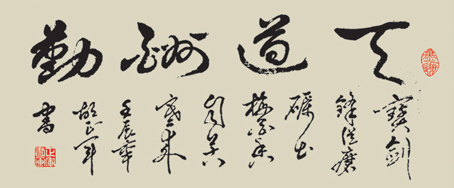 天道酬勤
寶劍
鋒從磨
礪出
梅花香
自苦
寒來
壬辰年
書